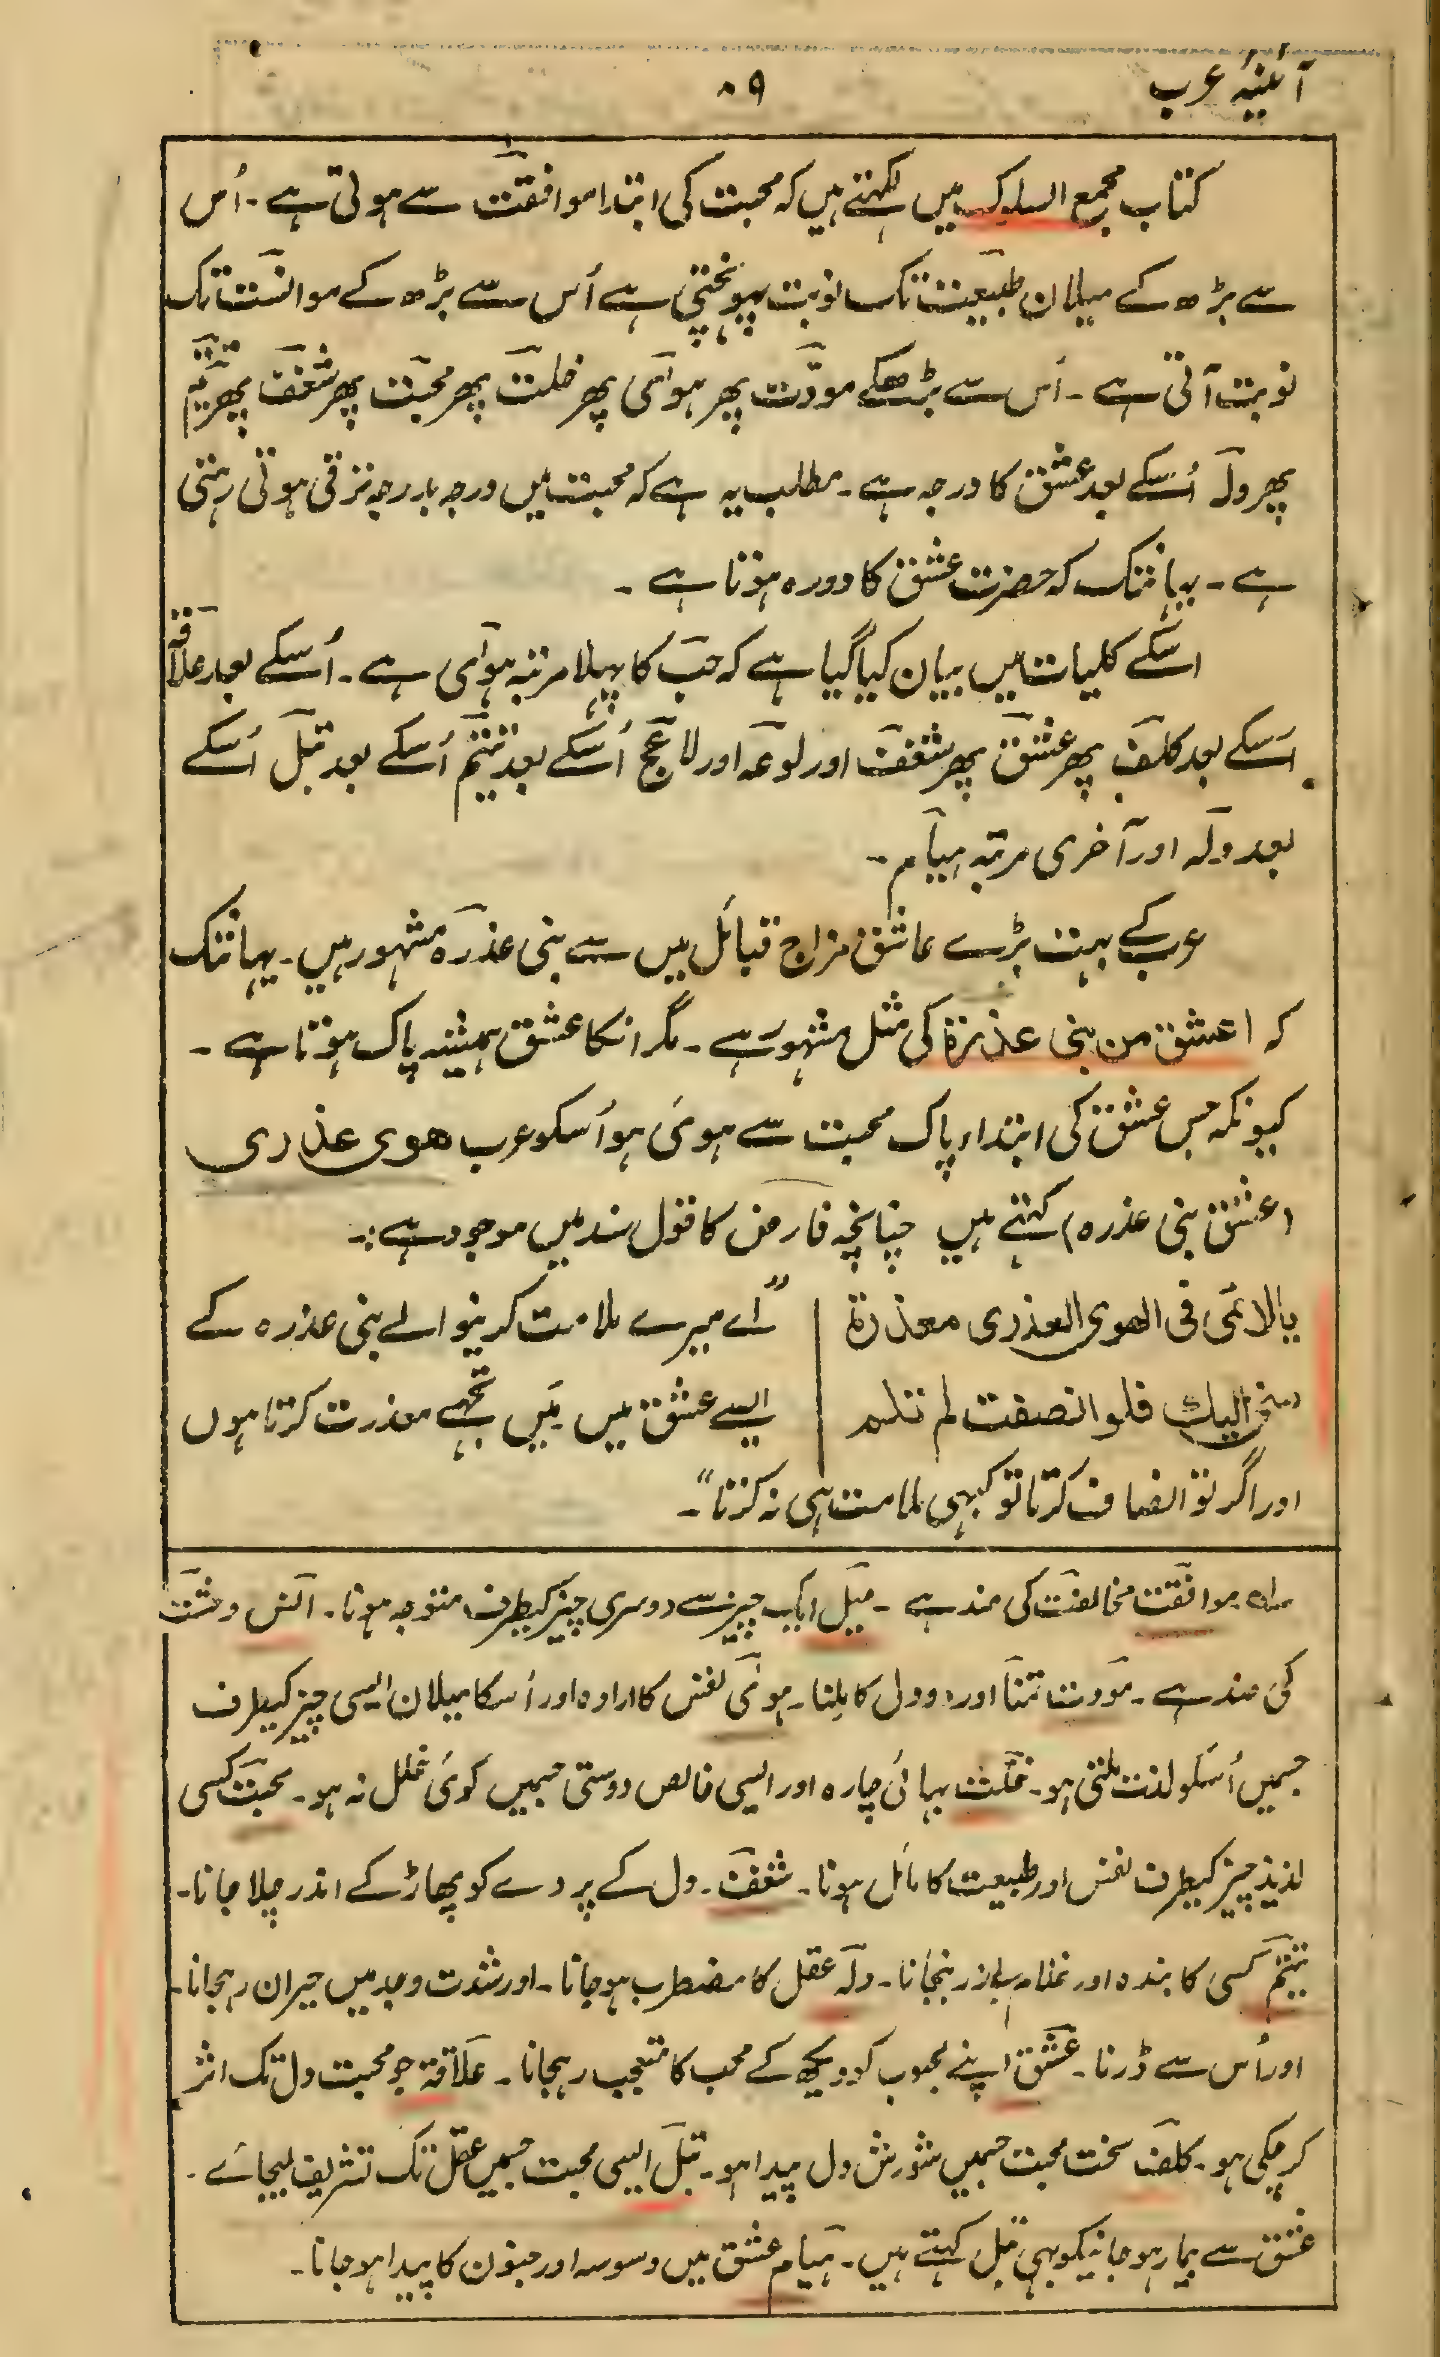 آئینۂ عرب
۵۹
کتاب مجمع السلوک میں لکھتے ہیں کہ محبت کی ابتدا موافقت سے ہوتی ہے ۔ اُس
سے بڑھ کے میلان طبیعت تک نوبت پہونچتی ہے اُس سے بڑھ کے موانست تک
نوبت آتی ہے ۔ اُس سے بڑھکے مودّت پھر ہوٰی پھر خلت پھر محبّت پھر شغف پھر تیتم
پھر ولہ اُسکے بعد عشق کا درجہ ہے ۔ مطلب یہ ہے کہ محبت میں درجہ بدرجہ ترقی ہوتی رہتی
ہے ۔ یہانتک کہ حضرت عشق کا دورہ ہوتا ہے ۔
اسکے کلیات میں بیان کیا گیا ہے کہ حب کا پہلا مرتبہ ہوٰی ہے ۔ اُسکے بعد علاقہ
اسکے بعد کلف پھر عشق پھر شغف اور لوعہ اور لاعج اُسکے بعد تیتم اُسکے بعد تبل اُسکے
بعد ولہ اور آخری مرتبہ ہیام ۔
عرب کے بہت بڑے عاشق مزاج قبائل میں سے بنی عذرہ مشہور ہیں ۔ یہانتک
کہ اعشق من بنی عذرۃ کی مثل مشہور ہے ۔ مگر انکا عشق ہمیشہ پاک ہوتا ہے ۔
کیونکہ جس عشق کی ابتداء پاک محبت سے ہوئی ہو اُسکو عرب ھوی عذری
(عشق بنی عذرہ) کہتے ہیں چنانچہ فارض کا قول سند میں موجود ہے :-
یا لائمی فی الھوی العذری معذرۃ
منی الیک فلو انصفت لم تلم
"اے میرے ملامت کرنیوالے بنی عذرہ کے
ایسے عشق میں میں تجھے معذرت کرتا ہوں
اور اگر تو انصاف کرتا تو کبھی ملامت ہی نہ کرتا" ۔
موافقت مخالفت کی ضد ہے ۔ میل ایک چیز سے دوسری چیز کیطرف متوجہ ہونا ۔ انس وحشت
کی ضد ہے ۔ مودت تمنا اور دو دل کا ملنا ۔ ہوٰی نفس کا ارادہ اور اُسکا میلان ایسی چیز کیطرف
جسمیں اُسکو لذت ملتی ہو ۔ خلت بہائی چارہ اور ایسی خالص دوستی جسمیں کوئی خلل نہ ہو ۔ محبت کسی
لذیذ چیز کیطرف نفس اور طبیعت کا مائل ہونا ۔ شغف ۔ دل کے پردے کو پھاڑ کے اندر چلا جانا ۔
تیتم کسی کا بندہ اور غلام بنجانا ۔ ولہ عقل کا مضطرب ہو جانا ۔ اور شدت وجد میں حیران رہجانا ۔
اور اُس سے ڈرنا ۔ عشق اپنے محبوب کو دیکھ کے محب کا متعجب رہجانا ۔ علاقہ جو محبت دل تک اثر
کر چکی ہو ۔ کلف سخت محبت جسمیں شورش دل پیدا ہو ۔ تبل ایسی محبت جسمیں عقل تک تشریف لیجائے ۔
عشق سے بیمار ہو جانیکو بہی تبل کہتے ہیں ۔ ہیام عشق میں وسوسہ اور جنون کا پیدا ہو جانا ۔